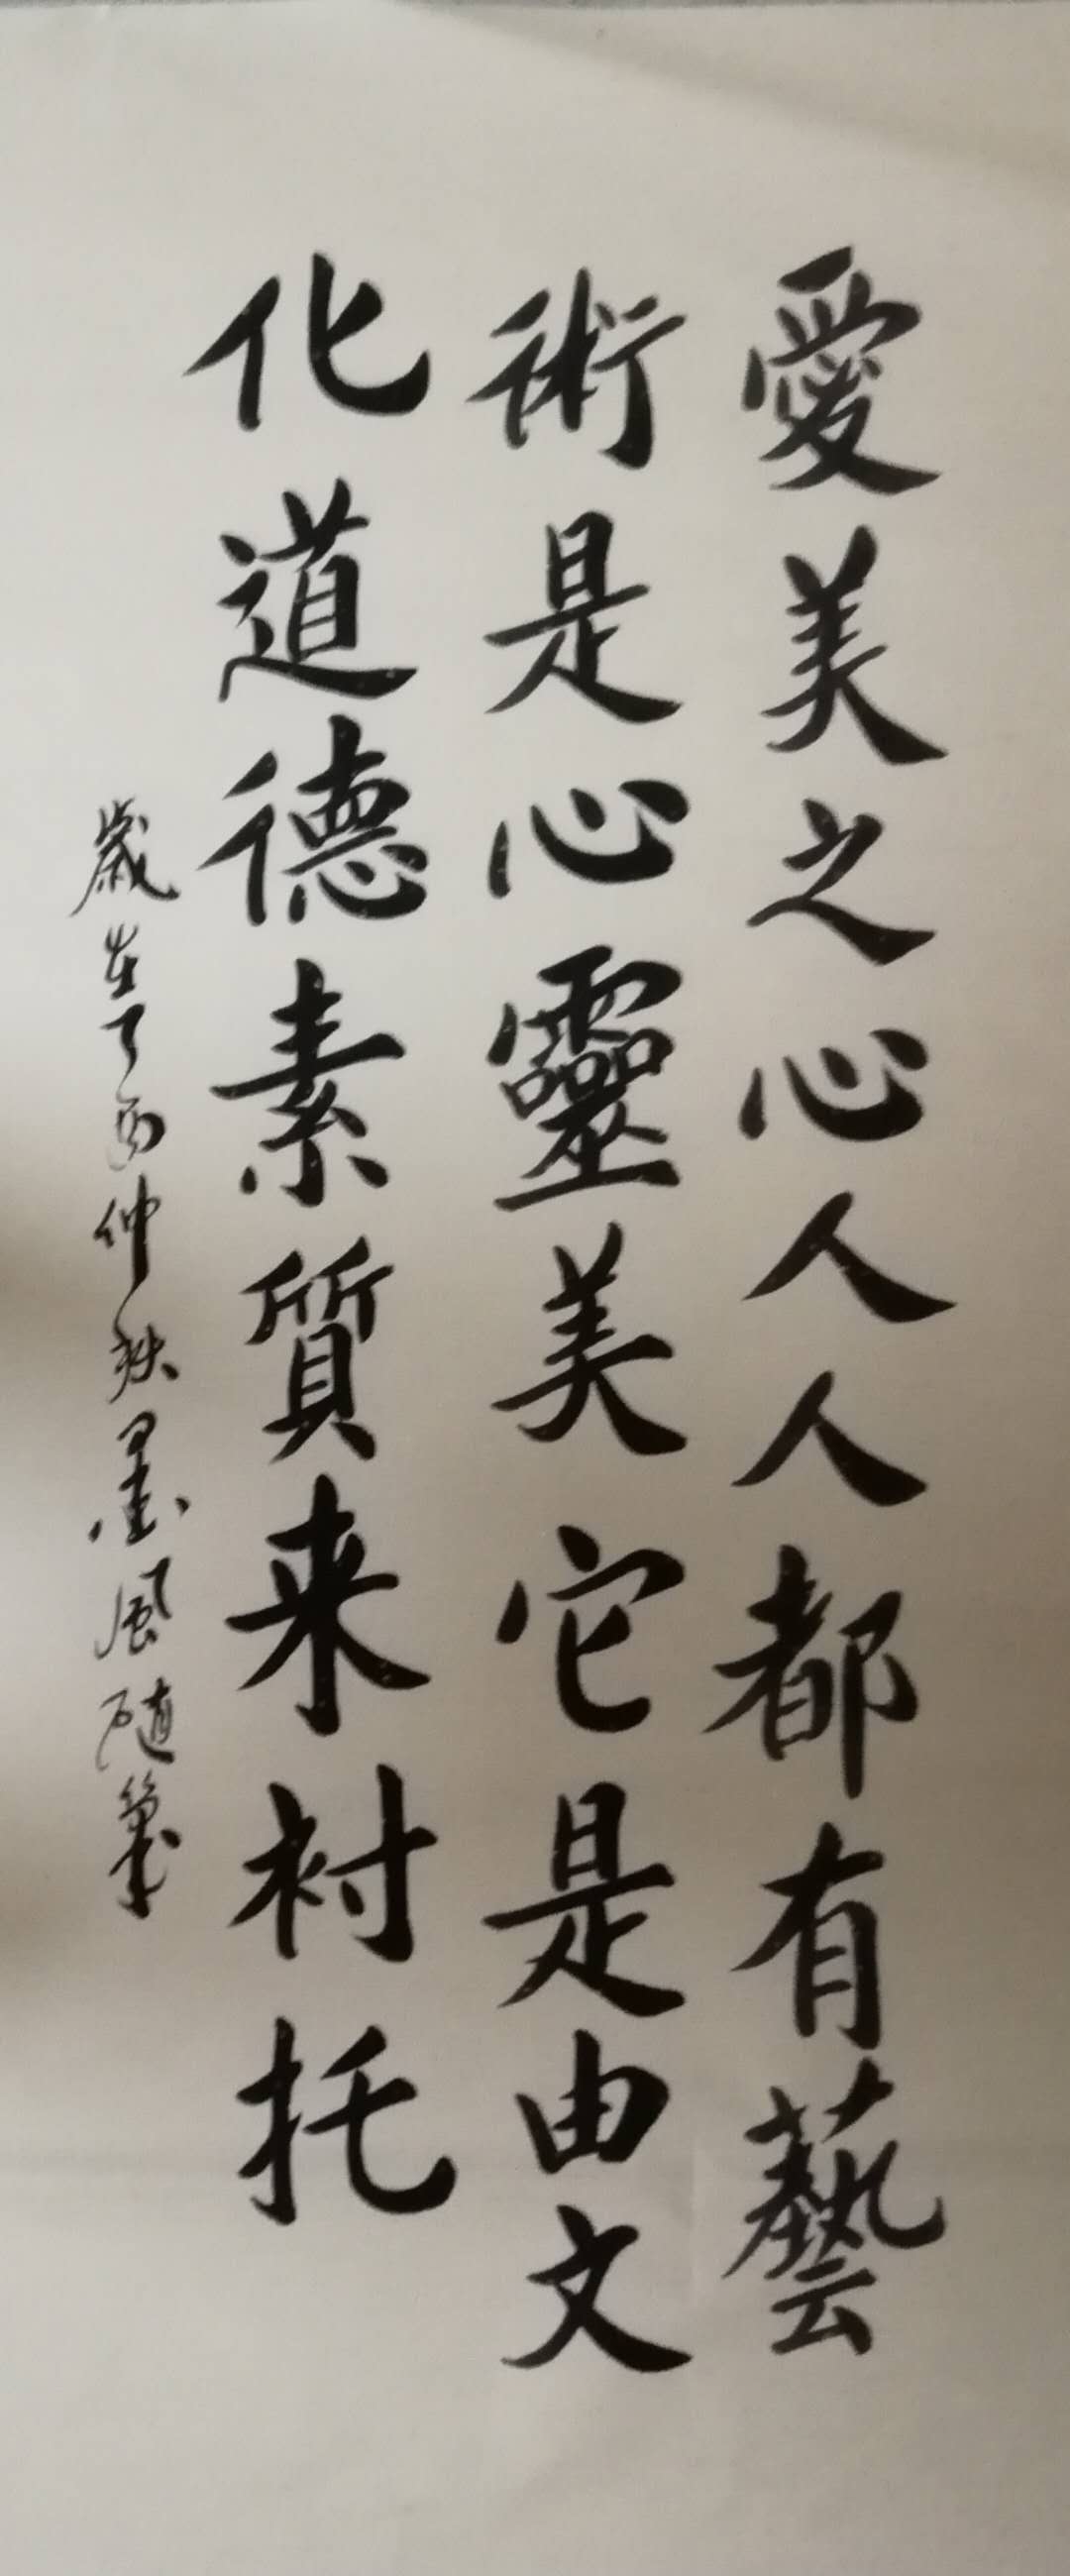 愛美之心人人都有藝
術是心靈美它是由文
化道德素質来衬托
歲在丁酉仲秋墨風随筆